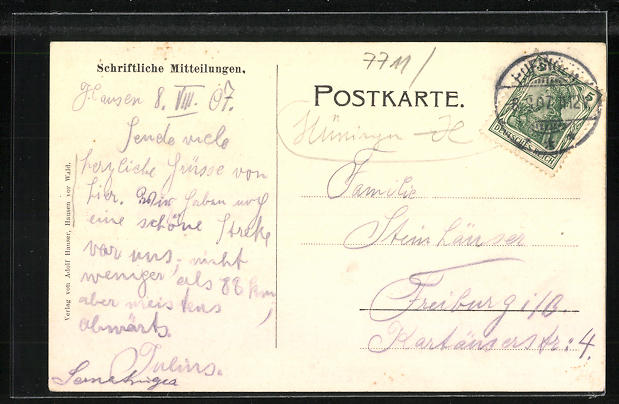 7711/
Schriftliche Mitteilungen.
POSTKARTE.
Hausen 8. VIII. 07.
Sende viele
herzliche Grüsse von
hier. Wir haben noch
eine schöne Streke
vor uns, nicht
weniger als 88 km
aber meistens
abwärts.
Julius.
Hüningen
Familie
Steinhäuser
Freiburg i/B.
Kartäuserstr: 4.
DEUTSCHES REICH
5
Verlag von Adolf Hauser, Hausen vor Wald.